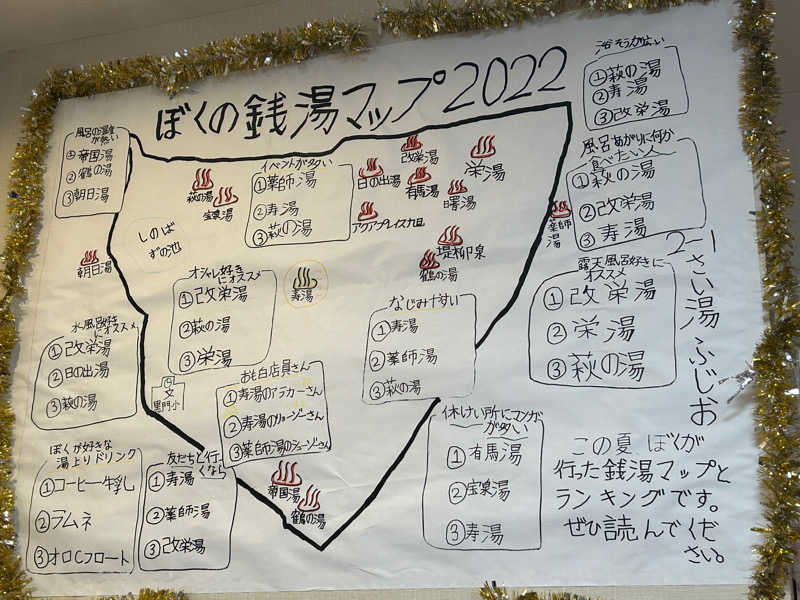 ぼくの銭湯マップ2022
浴そうが広い
①萩の湯
②寿湯
③改栄湯
風呂の温度
が熱い
①帝国湯
②鶴の湯
③朝日湯
イベントが多い
①薬師湯
②寿湯
③萩の湯
風呂あがりに何か
食べたい人
①萩の湯
②改栄湯
③寿湯
萩の湯
宝泉湯
日の出湯
改栄湯
有馬湯
栄湯
曙湯
アクアプレイス旭
堤柳泉
鶴の湯
薬師
湯
しのば
ずの池
朝日湯
寿湯
2-1
さい湯ふじお
オシャレ好き
にオススメ
①改栄湯
②萩の湯
③栄湯
なじみやすい
①寿湯
②薬師湯
③萩の湯
露天風呂好きに
オススメ
①改栄湯
②栄湯
③萩の湯
水風呂好き
にオススメ
①改栄湯
②日の出湯
③萩の湯
文
黒門小
おも白店員さん
①寿湯のアラカーさん
②寿湯のリョーゾーさん
③薬師湯のショーゾーさん
休けい所にマンガ
が多い
①有馬湯
②宝泉湯
③寿湯
ぼくが好きな
湯上りドリンク
①コーヒー牛乳
②ラムネ
③オロCフロート
友だちと行
くなら
①寿湯
②薬師湯
③改栄湯
帝国湯
鶴の湯
この夏、ぼくが
行った銭湯マップと
ランキングです。
ぜひ読んでくだ
さい。